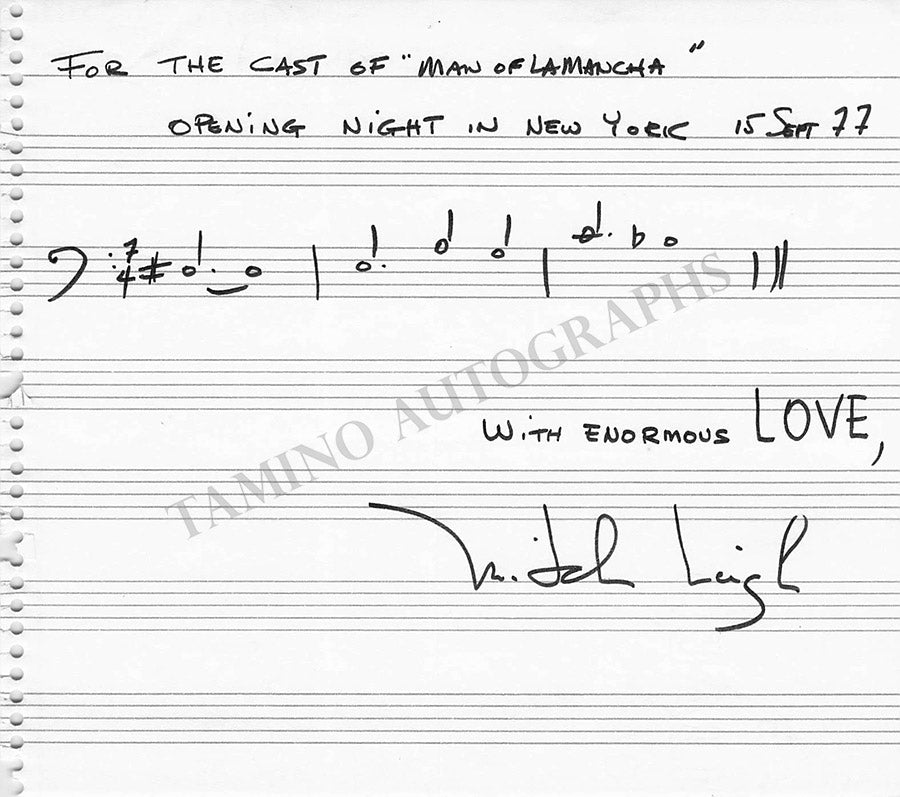 FOR THE CAST OF "MAN OF LA MANCHA"
OPENING NIGHT IN NEW YORK 15 SEPT 77
7
4
TAMINO AUTOGRAPHS
WITH ENORMOUS LOVE,
Mitch Leigh